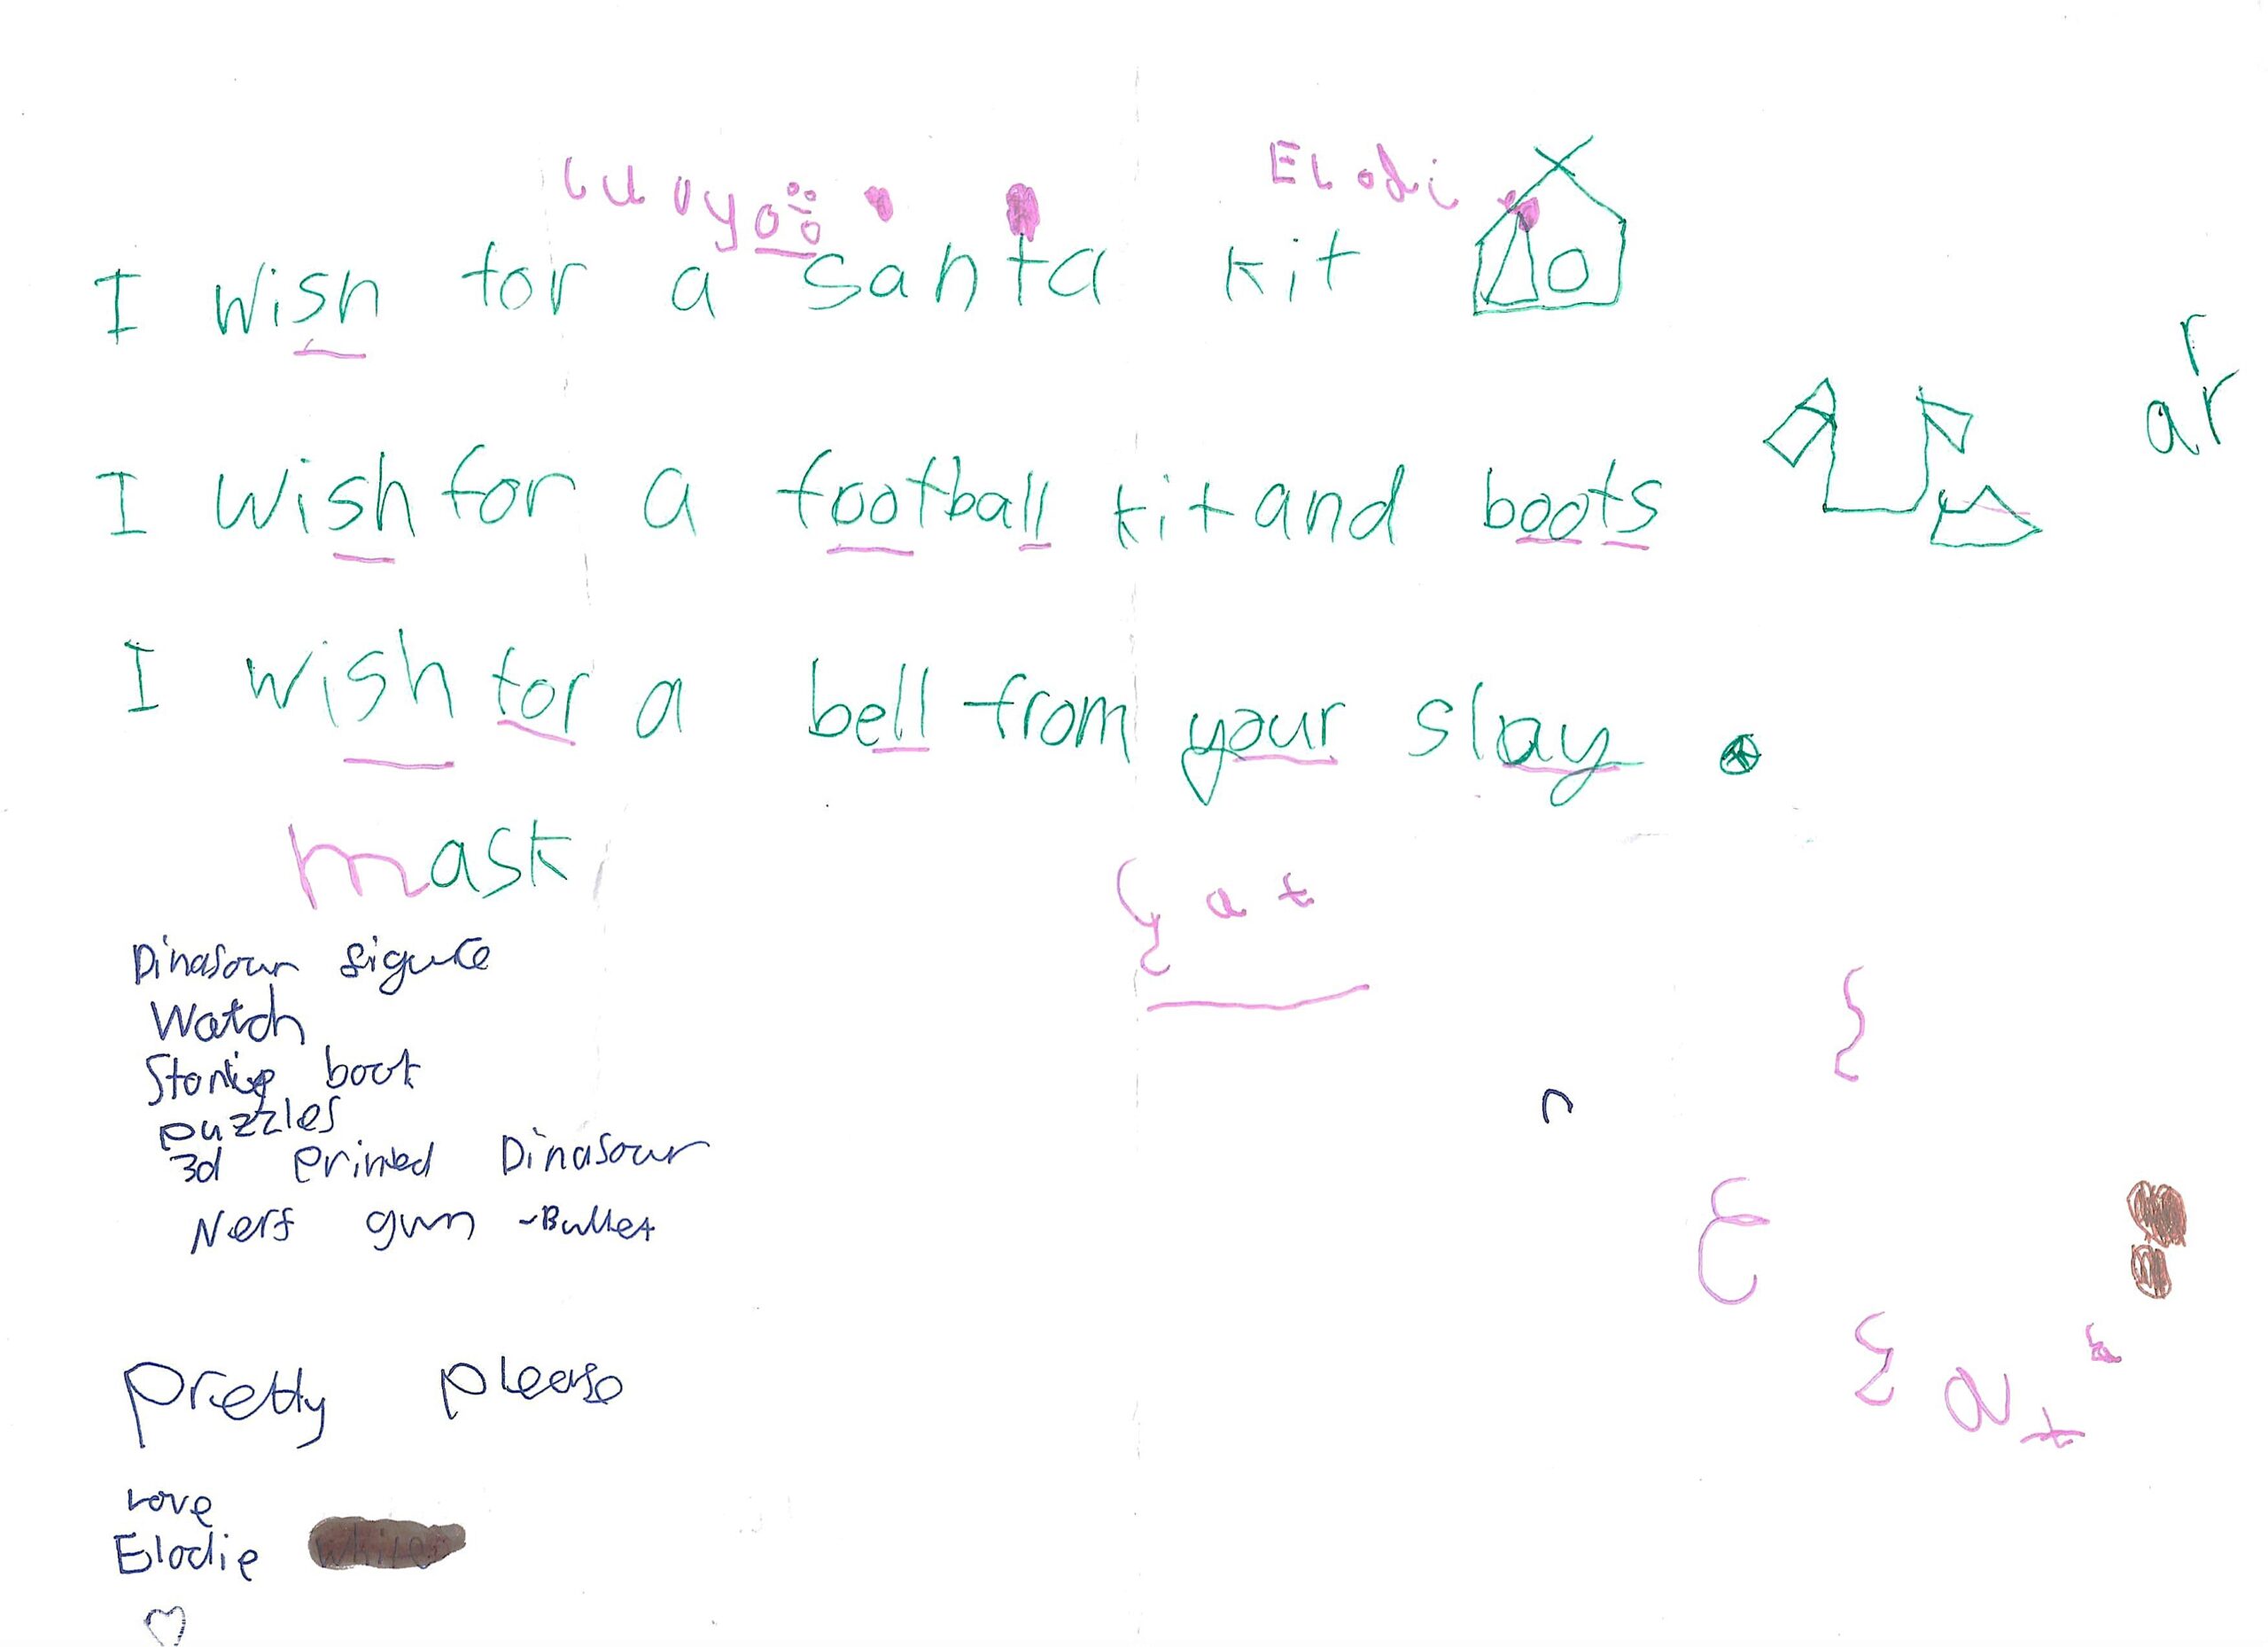 Elodi
I wish for a santa kit
r
ar
I wish for a football kit and boots
I wish for a bell from your slay
mask
at
Dinasour figure
Watch
book
puzzles
3d printed Dinasour
Nerf gun - Bullet
pretty please
Love
Elodie